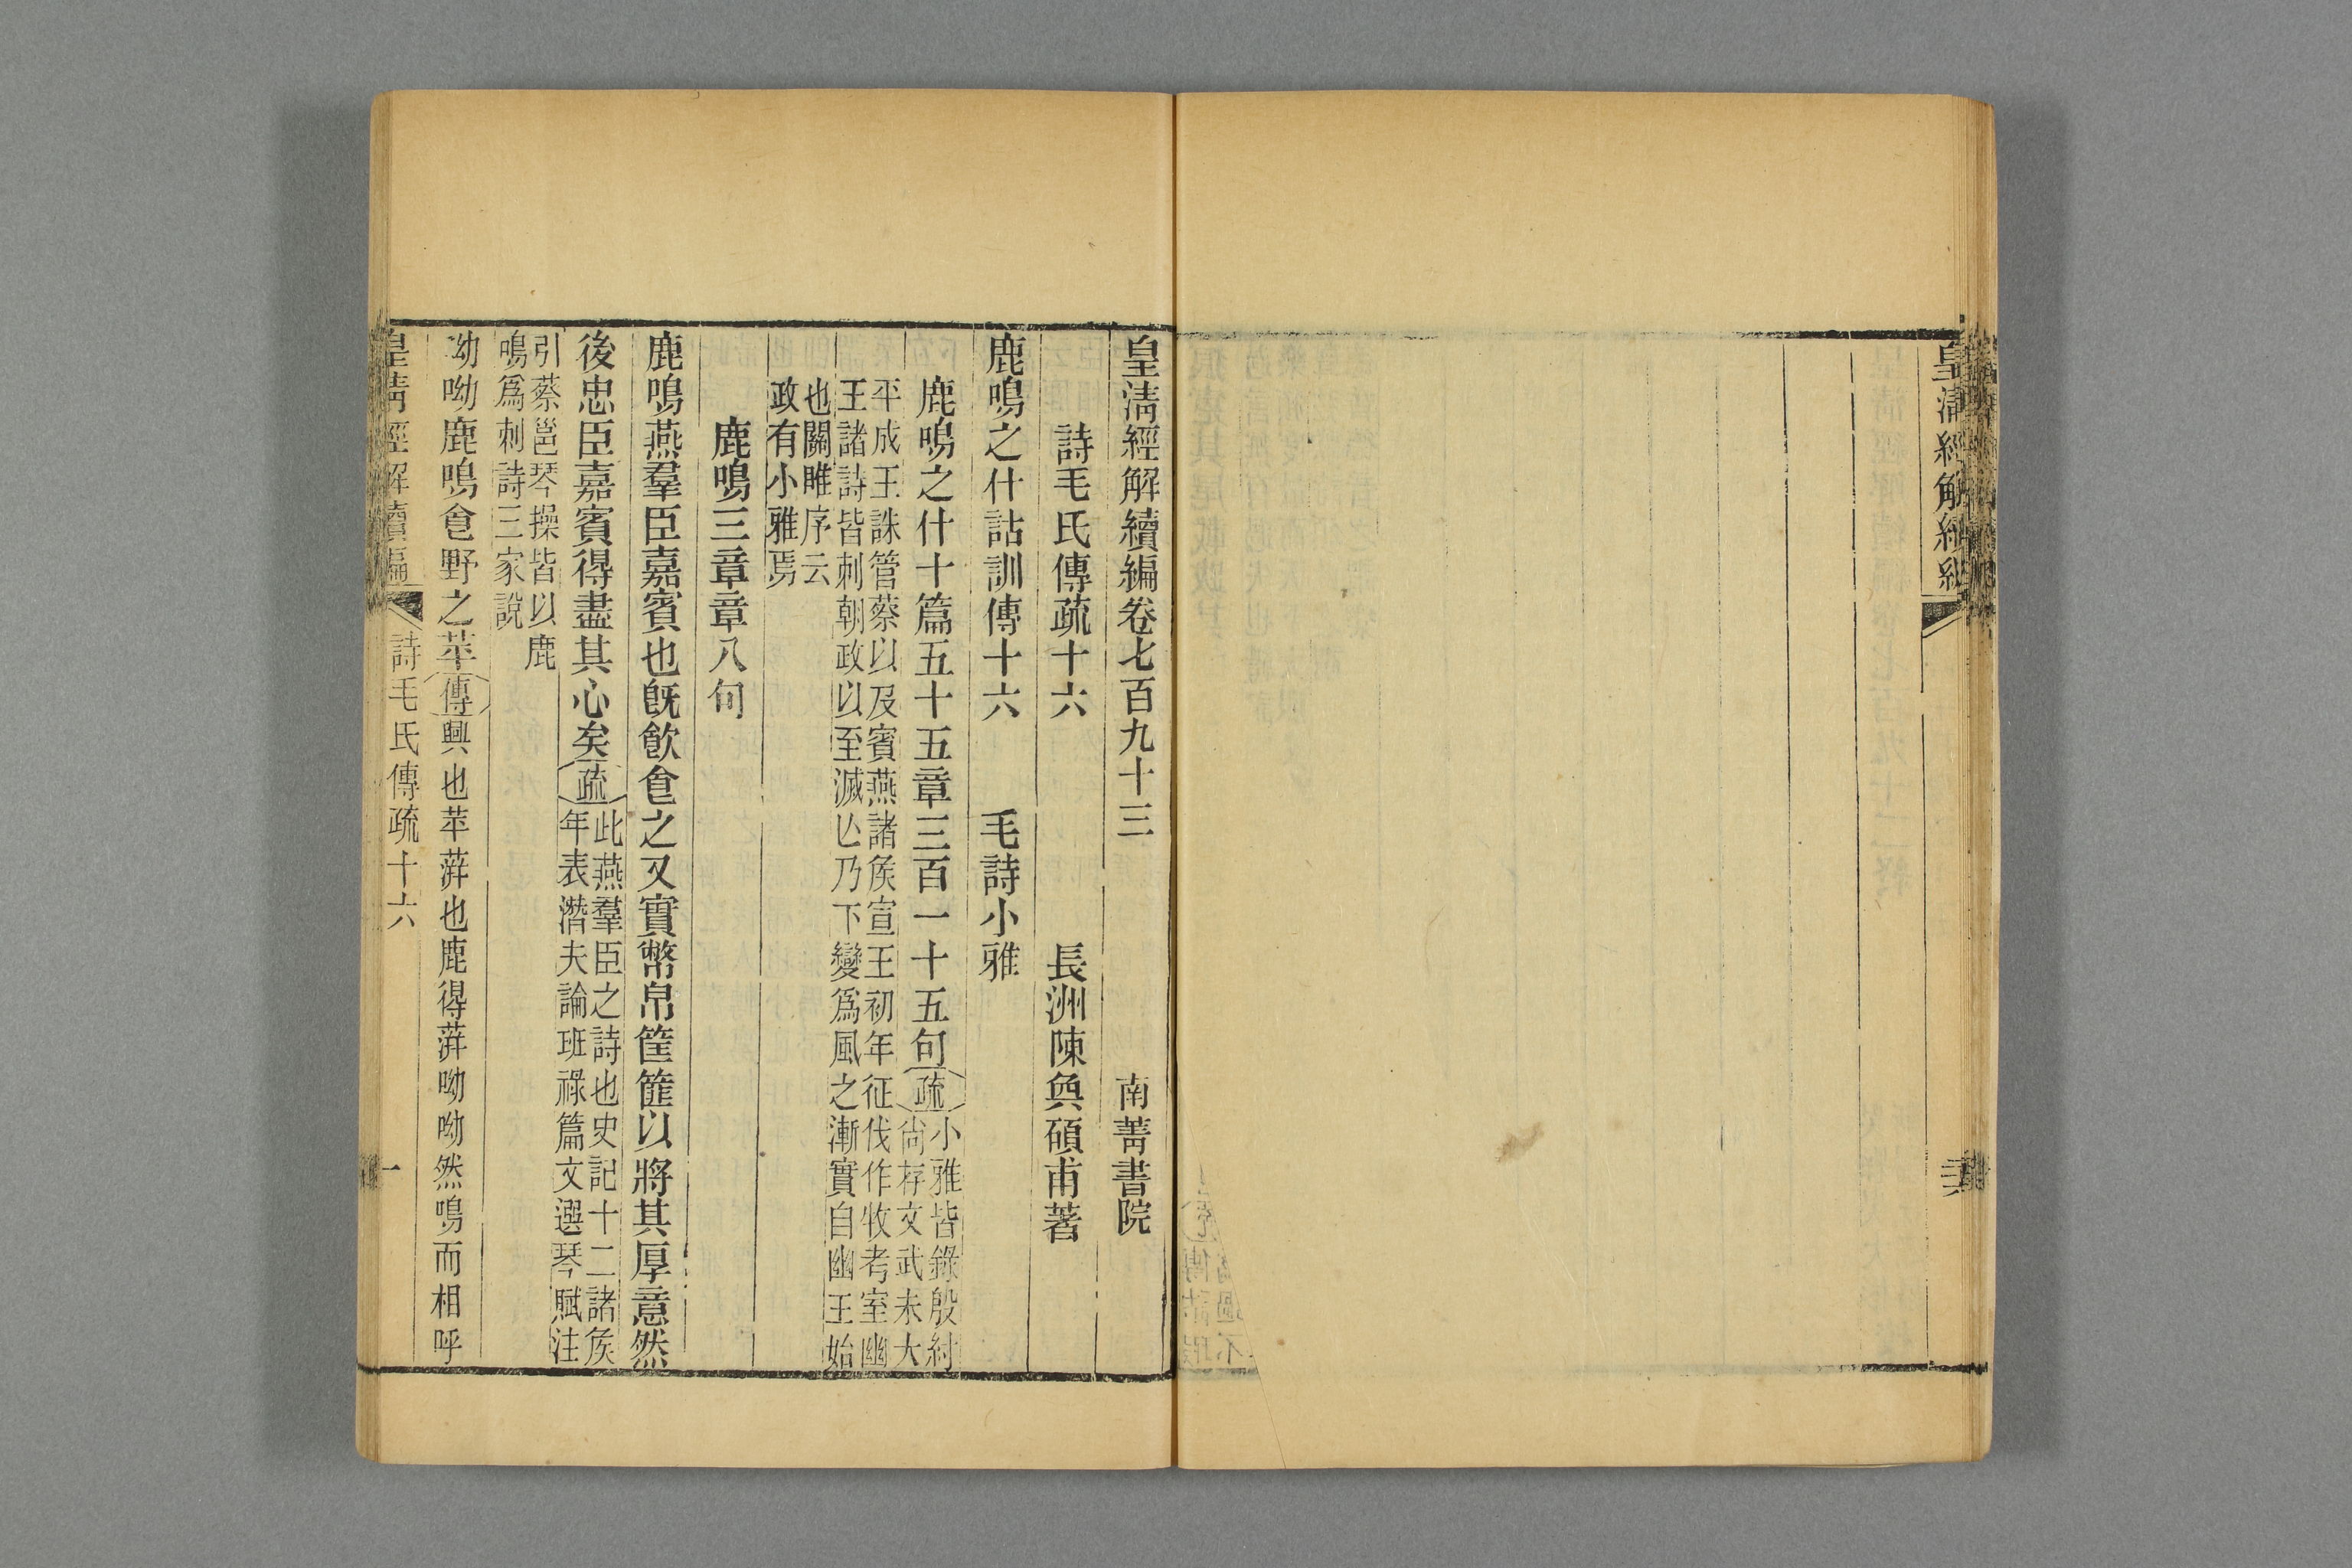 皇清經解續編
皇清經解續編卷七百九十三 南菁書院
詩毛氏傳疏十六 長洲陳奐碩甫著
鹿鳴之什詁訓傳十六 毛詩小雅
鹿鳴之什十篇五十五章三百一十五句疏小雅皆錄殷紂
尙存文武未大
平成王誅管蔡以及賓燕諸矦宣王初年征伐作牧考室幽
王諸詩皆刺朝政以至滅亾乃下變爲風之漸實自幽王始
也關雎序云
政有小雅焉
鹿鳴三章章八句
鹿鳴燕羣臣嘉賓也旣飮𠊊之又實幣帛筐篚以將其厚意然
後忠臣嘉賓得盡其心矣疏此燕羣臣之詩也史記十二諸矦
年表潛夫論班祿篇文選琴賦注
引蔡邕琴操皆以鹿
鳴爲刺詩三家說
呦呦鹿鳴𠊊野之苹傳興也苹蓱也鹿得蓱呦呦然鳴而相呼
皇清經解續編 詩毛氏傳疏十六 一